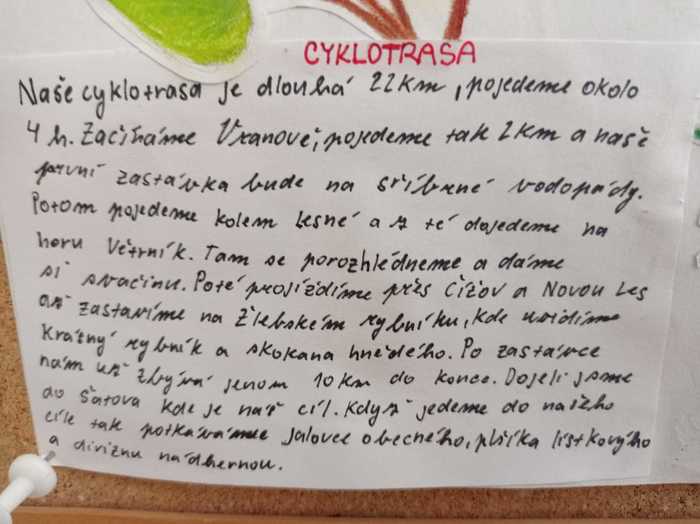 CYKLOTRASA
Naše cyklotrasa je dlouhá 22km, pojedeme okolo
4 h. Začínáme Vranově, pojedeme tak 2km a naše
první zastávka bude na stříbrné vodopády.
Potom pojedeme kolem Lesné a z té dojedeme na
horu Větrník. Tam se porozhlédneme a dáme
si svačinu. Poté projíždíme přes Čížov a Novou Les
až zastavíme na Žlebském rybníku, kde uvidíme
Krázný rybník a skokana hnědého. Po zastávce
nám už zbývá jenom 10km do konce. Dojeli jsme
do Šatova kde je náš cíl. Když jedeme do našho
cíle tak potkáváme Jalovce obecného, plšíka lískového
a diviznu nádhernou.